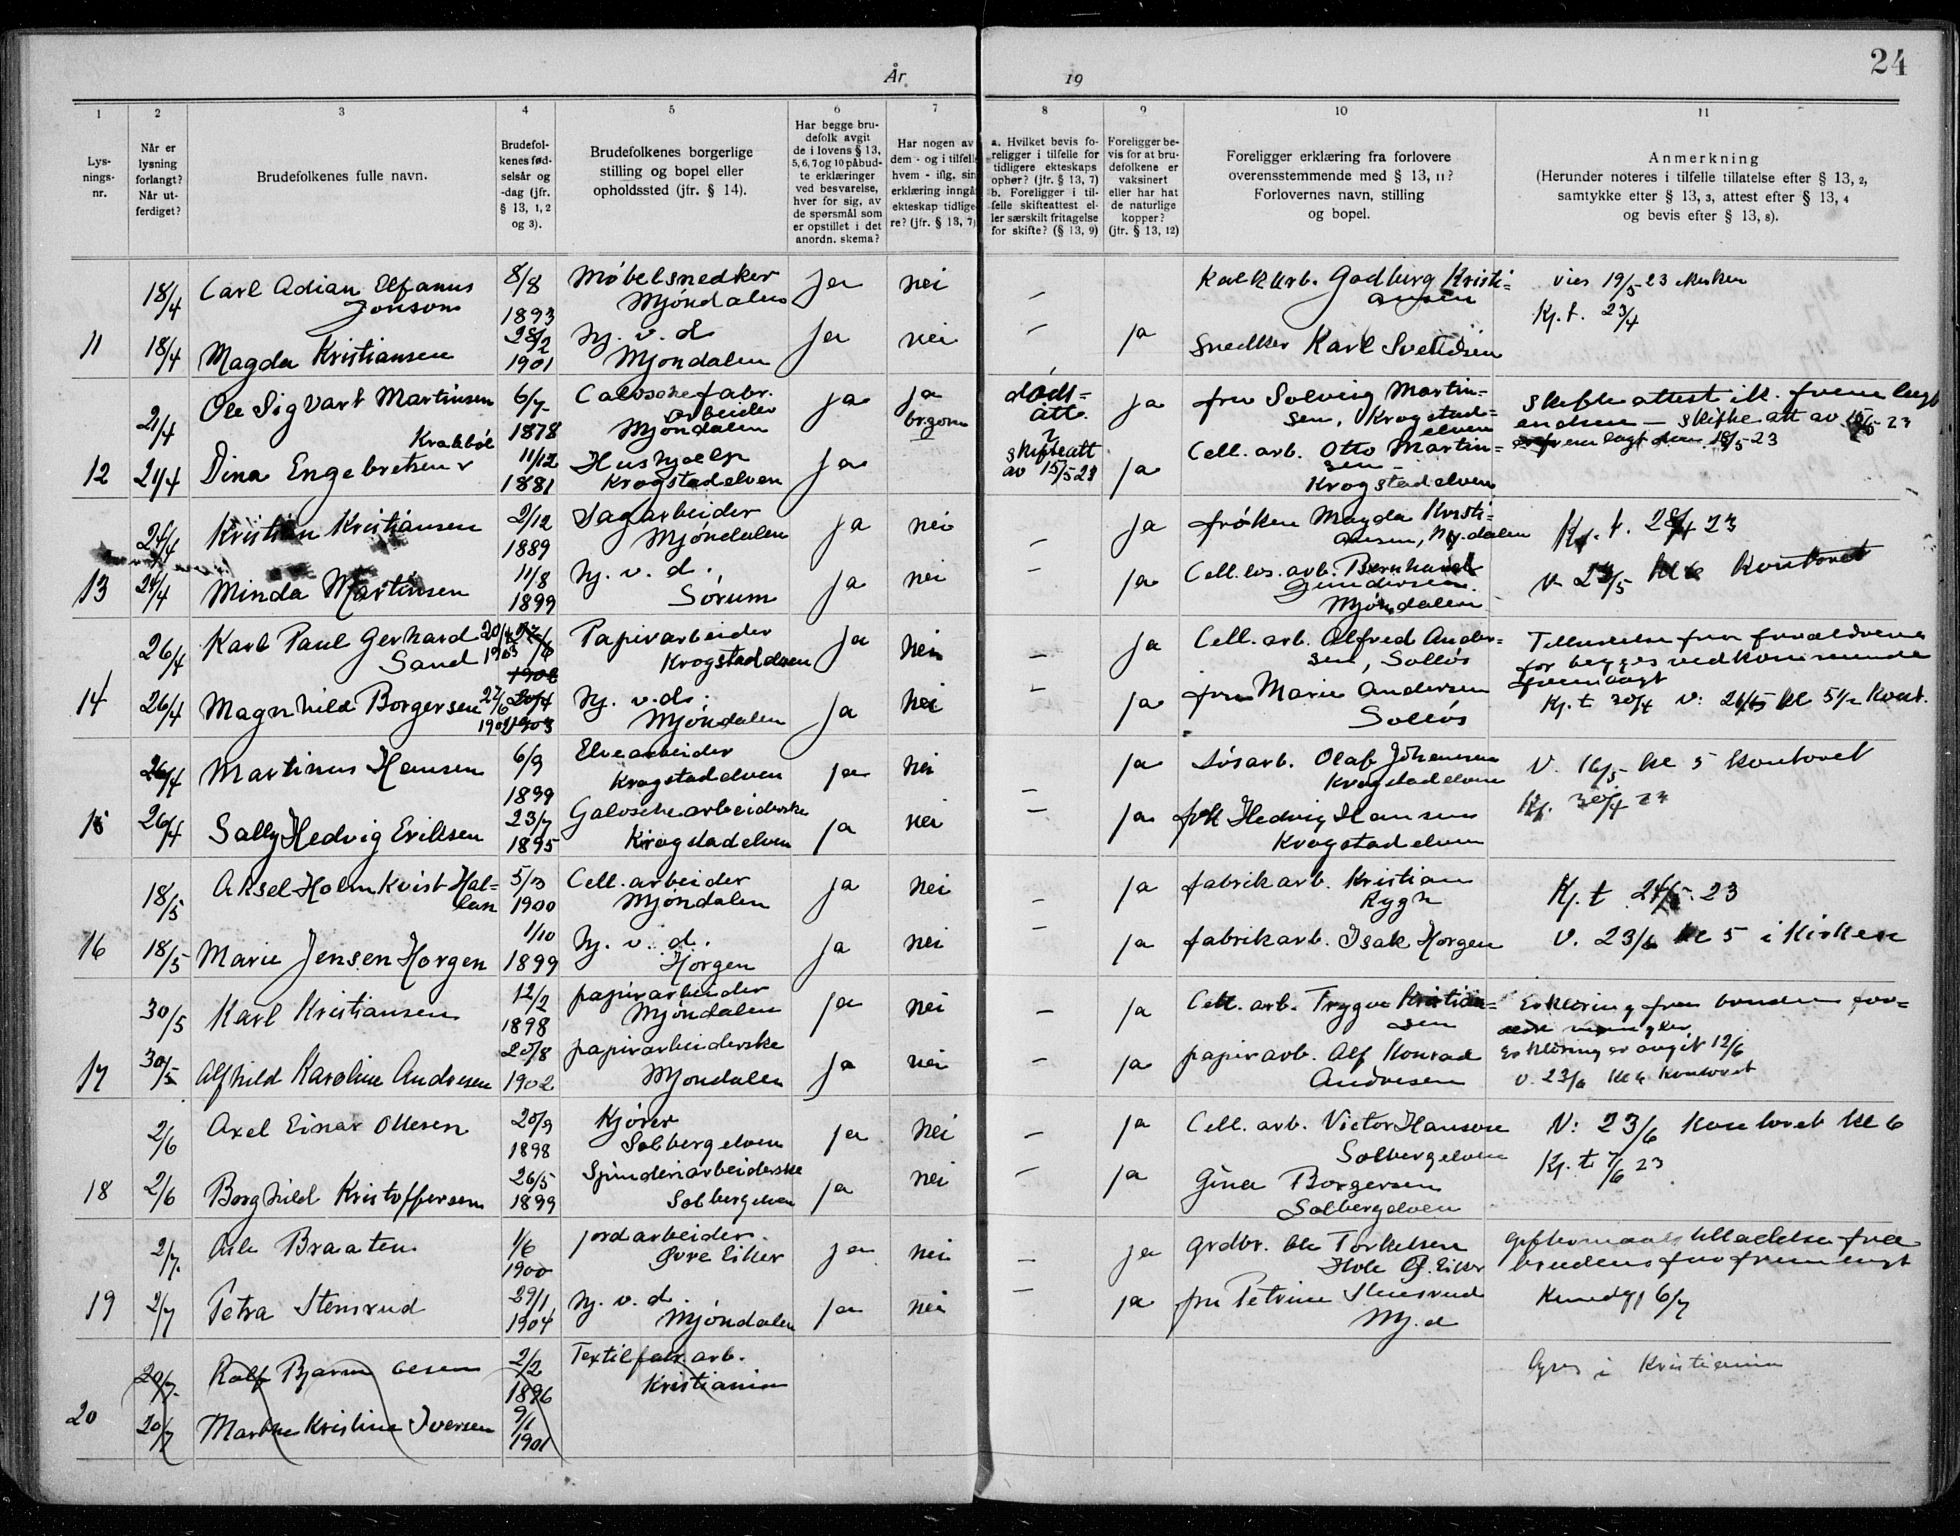 24
År 19
1 2 3 4 5 6 7 8 9 10 11
Lys-
nings-
nr.
Når er
lysning
forlangt?
Når ut-
ferdiget?
Brudefolkenes fulle navn.
Brudefol-
kenes fød-
selsår og
-dag (jfr.
§ 13, 1, 2
og 3).
Brudefolkenes borgerlige
stilling og bopel eller
opholdssted (jfr. § 14).
Har begge bru-
defolk avgit
de i lovens § 13,
5, 6, 7 og 10 påbud-
te erklæringer
ved besvarelse,
hver for sig, av
de spørsmål som
er opstillet i det
anordn. skema?
Har nogen av
dem - og i tilfelle
hvem - iflg. sin
erklæring inngå
ekteskap tidlige-
re? (jfr. § 13, 7)
a. Hvilket bevis fo-
religger i tilfelle for
tidligere ekteskaps
ophør? (jfr. § 13, 7)
b. Foreligger i til-
felle skifteattest el-
ler særskilt fritagelse
for skifte? (§ 13, 9)
Foreligger be-
vis for at bru-
defolkene er
vaksinert
eller har hat
de naturlige
kopper?
(jfr. § 13, 12)
Foreligger erklæring fra forlovere
overensstemmende med § 13, 11?
Forlovernes navn, stilling
og bopel.
Anmerkning
(Herunder noteres i tilfelle tillatelse efter § 13, 2,
samtykke etter § 13, 3, attest efter § 13, 4
og bevis efter § 13, 8).
18/4 Carl Adian Elfanus
Jonsson
8/8
1893
Møbelsnedker
Mjøndalen
ja nei —
Kalkarb. Godberg Kristi-
ansen
vies 19/5 23
Kj. t. 23/4
11 18/4 Magda Kristiansen
28/2
1901
hj. v. d.
Mjøndalen
ja nei — ja
Snedker Karl Svendsen
21/4 Ole Sigvart Martinsen
Krakkbøl
6/7
1878
Caloschefabr.
arbeider
Mjøndalen
ja ja
brgom
døds-
att.
ja
fru Solveig Martin-
sen, Krogstad-
elven
Skifteattest ik. frem lagt
endnu — skifte att av 15/5 23
fremlagt den 18/5-23
12 21/4 Dina Engebretsen
11/12
1881
Hushjelp
Krogstadelven
ja
skifteatt
av 15/5 23
ja
Cell. arb. Otto Martin-
sen -
Krogstadelven
24/4 Kristian Kristiansen
2/12
1889
Sagarbeider
Mjøndalen
ja nei — ja
frøken Magda Kristi-
ansen, Mj.dalen
Kj. t. 28/4 23
13 24/4 Minda Martinsen
11/8
1899
hj. v. d.
Sørum
ja nei ja
Cell. los. arb. Bernhard
Gundersen
Mjøndalen
kontoret
26/4 Karl Paul Gerhard
Sand
20/4
1903
Papirarbeider
Krogstadelven
ja nei — ja
Cell. arb. Alfred Ander-
sen, Solløs
Tilladelse fra forældrene
for begges vedkommende
fremlagt
14 26/4 Magnhild Borgersen
27/6
hj. v. d.
Mjøndalen
ja nei — ja
fru Marie Andersen
Solløs
Kj. t 30/4 v: 26/5 kl 5 1/2 Kont.
26/4 Martinus Hansen
6/9
1899
Elvearbeider
Krogstadelven
ja nei — ja
Løsarb. Olaf Johansen
Krogstadelven
V. 16/5 kl 5 kontoret
15 26/4 Sally Hedvig Eriksen
23/7
1895
Galoschearbeiderske
Krogstadelven
ja nei — ja
frk Hedvig Hansen
Krogstadelven
Kj. 30/4 23
18/5 Aksel Holmkvist Hal-
lan
5/3
1900
Cell. arbeider
Mjøndalen
ja nei — ja
fabrikarb. Kristian
Rygh
Kj. t 24/5. 23
16 18/5 Marie Jensen Horgen
1/10
1899
hj. v. d.
Horgen
ja nei — ja
fabrikarb. Isak Horgen
V. 23/6 kl 5 i kirken
30/5 Karl Kristiansen
12/2
1898
papirarbeider
Mjøndalen
ja nei — ja
Cell. arb. Trygve Kristian-
sen
Erklæring fra brudens for-
ældre mangler
17 30/5 Alfhild Karoline Andresen
20/8
1902
papirarbeiderske
Mjøndalen
ja nei — ja
papirarb. Alf Konrad
Andresen
Erklæring er avgit 12/6
v. 23/6 kl 6 kontoret
2/6 Axel Einar Olsen
20/9
1898
Kjører
Solbergelven
ja nei — ja
Cell. arb. Victor Hanson
Solbergelven
V: 23/6 kontoret kl 6
18 2/6 Borghild Kristoffersen
26/5
1899
Spinderiarbeiderske
Solbergelven
ja nei — ja
Gina Borgersen
Solbergelven
Kj. t. 7/6 23
2/7 Ole Braaten
1/6
1900
jordarbeider
Øvre Eiker
ja nei — ja
grdbr. Ole Torkelsen
Hole Ø. Eiker
giftermaals tilladelse fra
brudens far fremlagt
19 2/7 Petra Stensrud
29/1
1904
hj. v. d.
Mjøndalen
ja nei — ja
fru Petrine Stensrud
Mj.d
6/7
20/7. Rolf Bjarne Olsen
2/2
1896
Textilfabr. arb.
Kristiania
i Kristiania
20 20/7 Marthe Kristine Iversen
9/1
1901